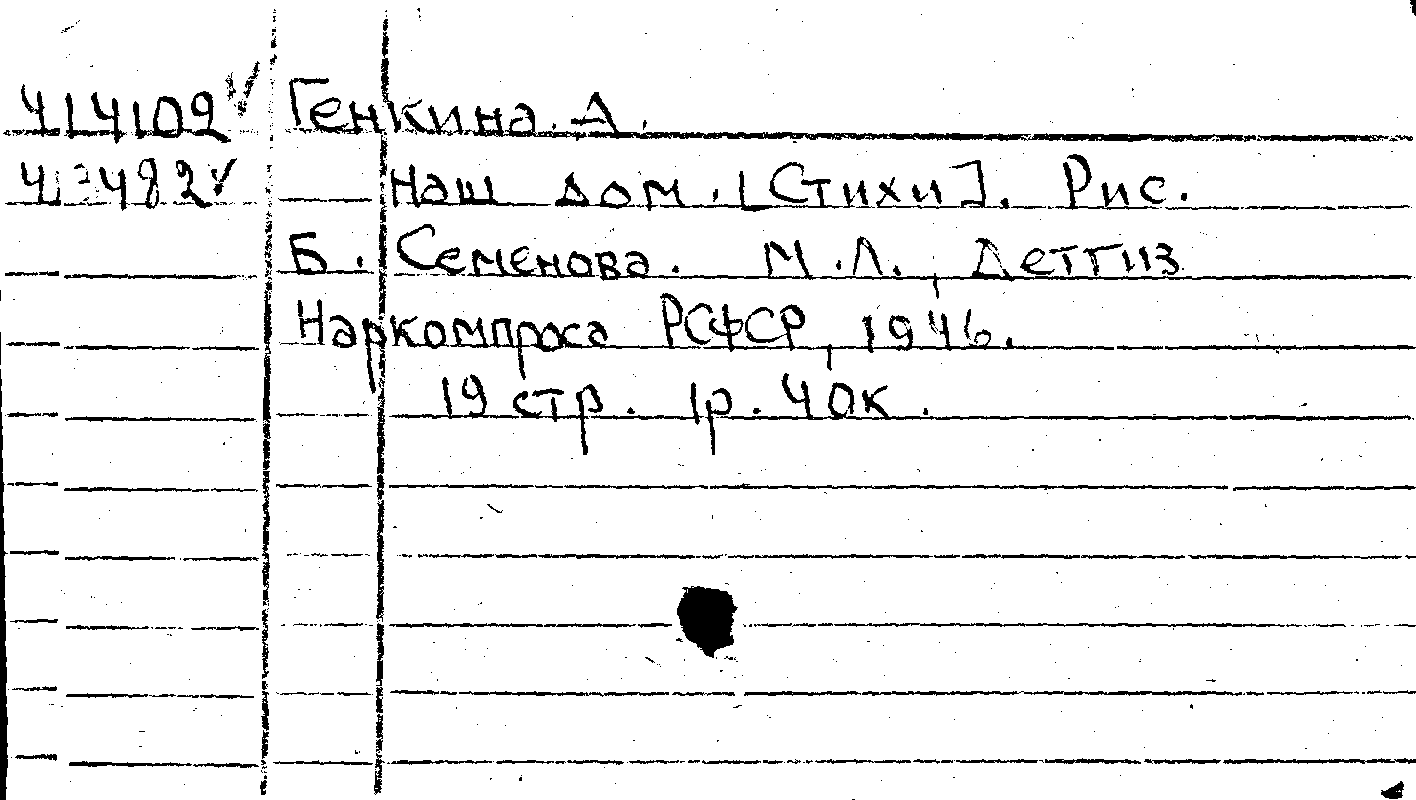 414102 ✓ Генкина. А.
Наш дом. [Стихи]. Рис.
Б. Семенова. М.Л., Детгиз
Наркомпроса РСФСР, 1946.
19 стр. 1р. 40к.